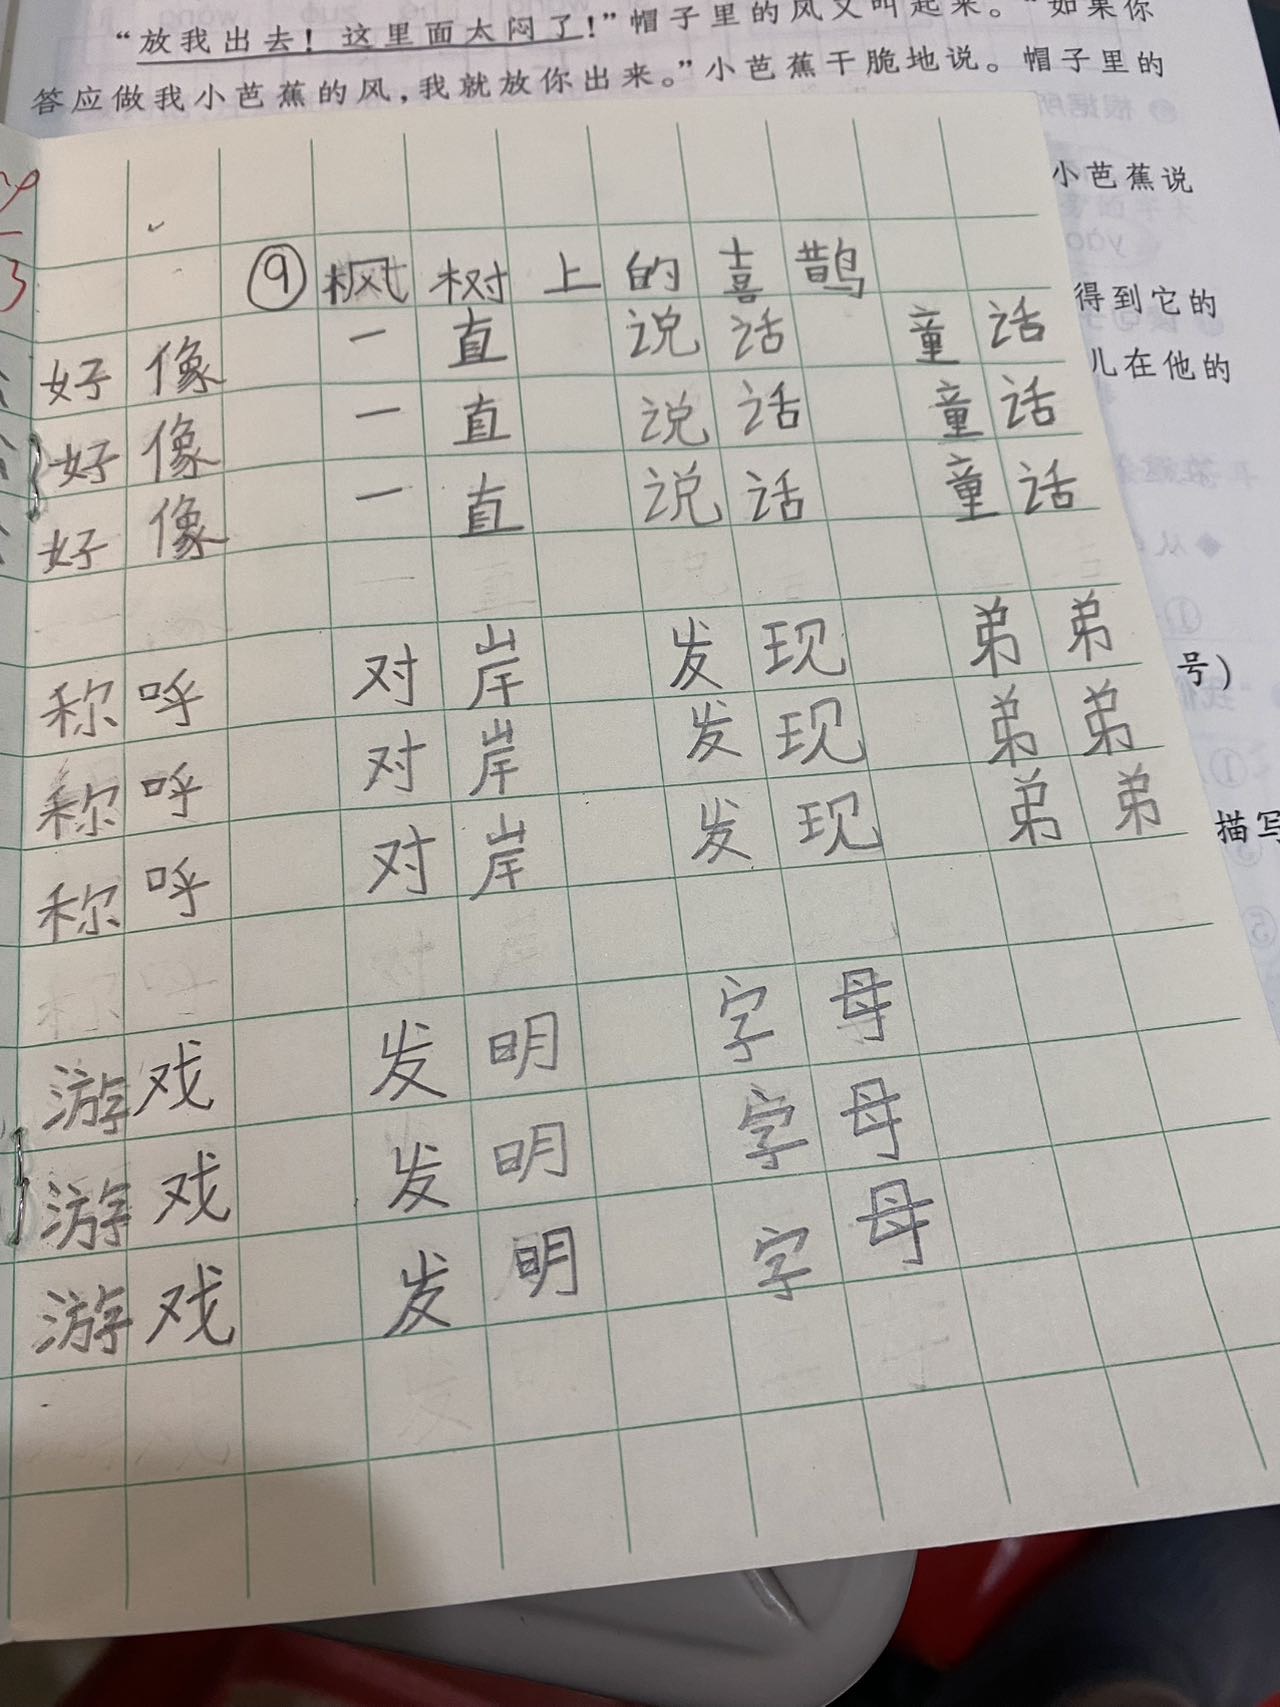 “放我出去！这里面太闷了！”帽子里的风又叫起来。“如果你
答应做我小芭蕉的风，我就放你出来。”小芭蕉干脆地说。帽子里的
小芭蕉说
得到它的
儿在他的
号）
描写
⑨枫树上的喜鹊
好像 一直 说话 童话
好像 一直 说话 童话
好像 一直 说话 童话
称呼 对岸 发现 弟弟
称呼 对岸 发现 弟弟
称呼 对岸 发现 弟弟
游戏 发明 字母
游戏 发明 字母
游戏 发明 字母